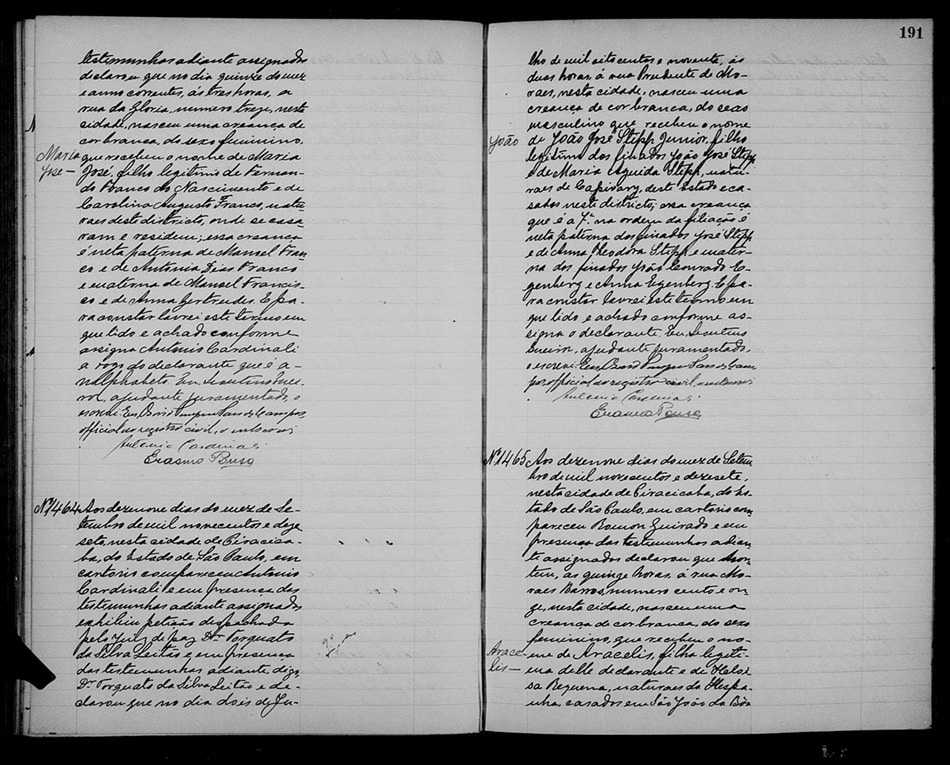 testimunhas adiante assignados
declarou que no dia quinze do mez
e anno correntes, ás tres horas, a
rua da Gloria, numero treze, nesta
cidade, nasceu uma creança de
cor branca, do sexo feminino,
Maria
José —
que recebeu o nome de Maria
José, filha legitima de Fernan-
do Franco do Nascimento e de
Carolina Augusto Franco, natu-
raes deste districto, onde se casa-
ram e residem; essa creança
é neta paterna de Manoel Fran-
co e de Antonia Dias Franco
e materna de Manoel Francis-
co e de Anna Gertrudes. E pa-
ra constar lavrei este termo em
que lido e achado conforme
assigna Antonio Cardinali
a rogo do declarante que é a-
nalphabeto. Eu,
ajudante juramentado, o
escrevi. Eu,
official do registro civil, o subscrevi
Antonio Cardinali
Erasmo
Nº 1464 Aos dezenove dias do mez de Se-
tembro de mil novecentos e deze-
sete, nesta cidade de Piracica-
ba, do Estado de São Paulo, em
cartorio compareceu Antonio
Cardinali e em presença das
testimunhas adiante assignados
exhibiu petição despachada
pelo Juiz de paz Dr. Torquato
da Silva Leitão e em presença
das testemunhas adiante, digo,
Dr. Torquato da Silva Leitão e de-
clarou que no dia dois de Ju-
191
lho de mil oitocentos e noventa, ás
duas horas, á rua Prudente de Mo-
raes, nesta cidade, nasceu uma
creança de cor branca, do sexo
masculino que recebeu o nome
João
de João José Stipp Junior, filho
legitimo dos finados João José Stipp
e de Maria Agueida Stipp, natu-
raes de Capivary, deste Estado e ca-
sados neste districto; essa creança
que é a 7ª na ordem da filiação é
neta paterna dos finados José Stipp
e de Anna Theodora Stipp e mater-
na dos finados João Conrado E-
genberg e Anna Egenberg. E pa-
ra constar lavrei este termo em
que lido e achado conforme as-
signa o declarante. Eu,
ajudante juramentado,
o escrevi. Eu,
official do registro civil, o subscrevi
Antonio Cardinali
Erasmo
Nº 1465 Aos dezenove dias do mez de Setem-
bro de mil novecentos e dezesete,
nesta cidade de Piracicaba, do Es-
tado de São Paulo, em cartorio com-
pareceu Ramon Guirado e em
presença das testemunhas adian-
te assignados declarou que hon-
tem, as quinze horas, á rua Mo-
raes Barros, numero cento e on-
ze, nesta cidade, nasceu uma
creança de cor branca, do sexo
feminino, que recebeu o no-
Arace-
lis —
me de Aracelis, filha legiti-
ma delle declarante e de Heloi-
sa Requena, naturaes da Hespa-
nha, casados em São João da Bôa